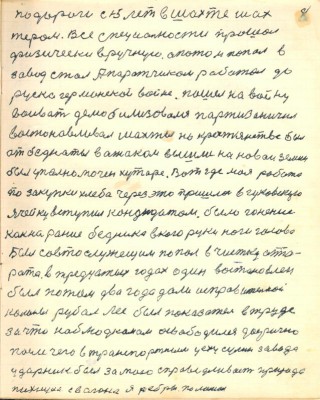 81
подороги с 15 лет в шахте шах
тером. Все специальности прошол
физически вручную, а потом попол в
завод стал Апаратчиком работал до
руско германской войне. пошел на войну
воивал демобилизовался партизанил
востонавливал шахты на крестянстве был
от бедноты вожаком вышли на новаи земли
был уполномочен хутора. Вот где моя работа
по закупки хлеба через это пришлось в гуковскую
ячейку вступил кондидатом. было гонение
как на рание бедника в кого руки ноги голова
был совтослужещим попол в чистку
рата, в тредцатых годах один востоновлен
был потом два года дали исправительной
колоны рубал лес был показатель в труде
за что наблюдком освободился досрочно
после чего в транспортном цеху сулин завода
ударник был за мою справедливает
пихнули с вагона 2 ребры поломал